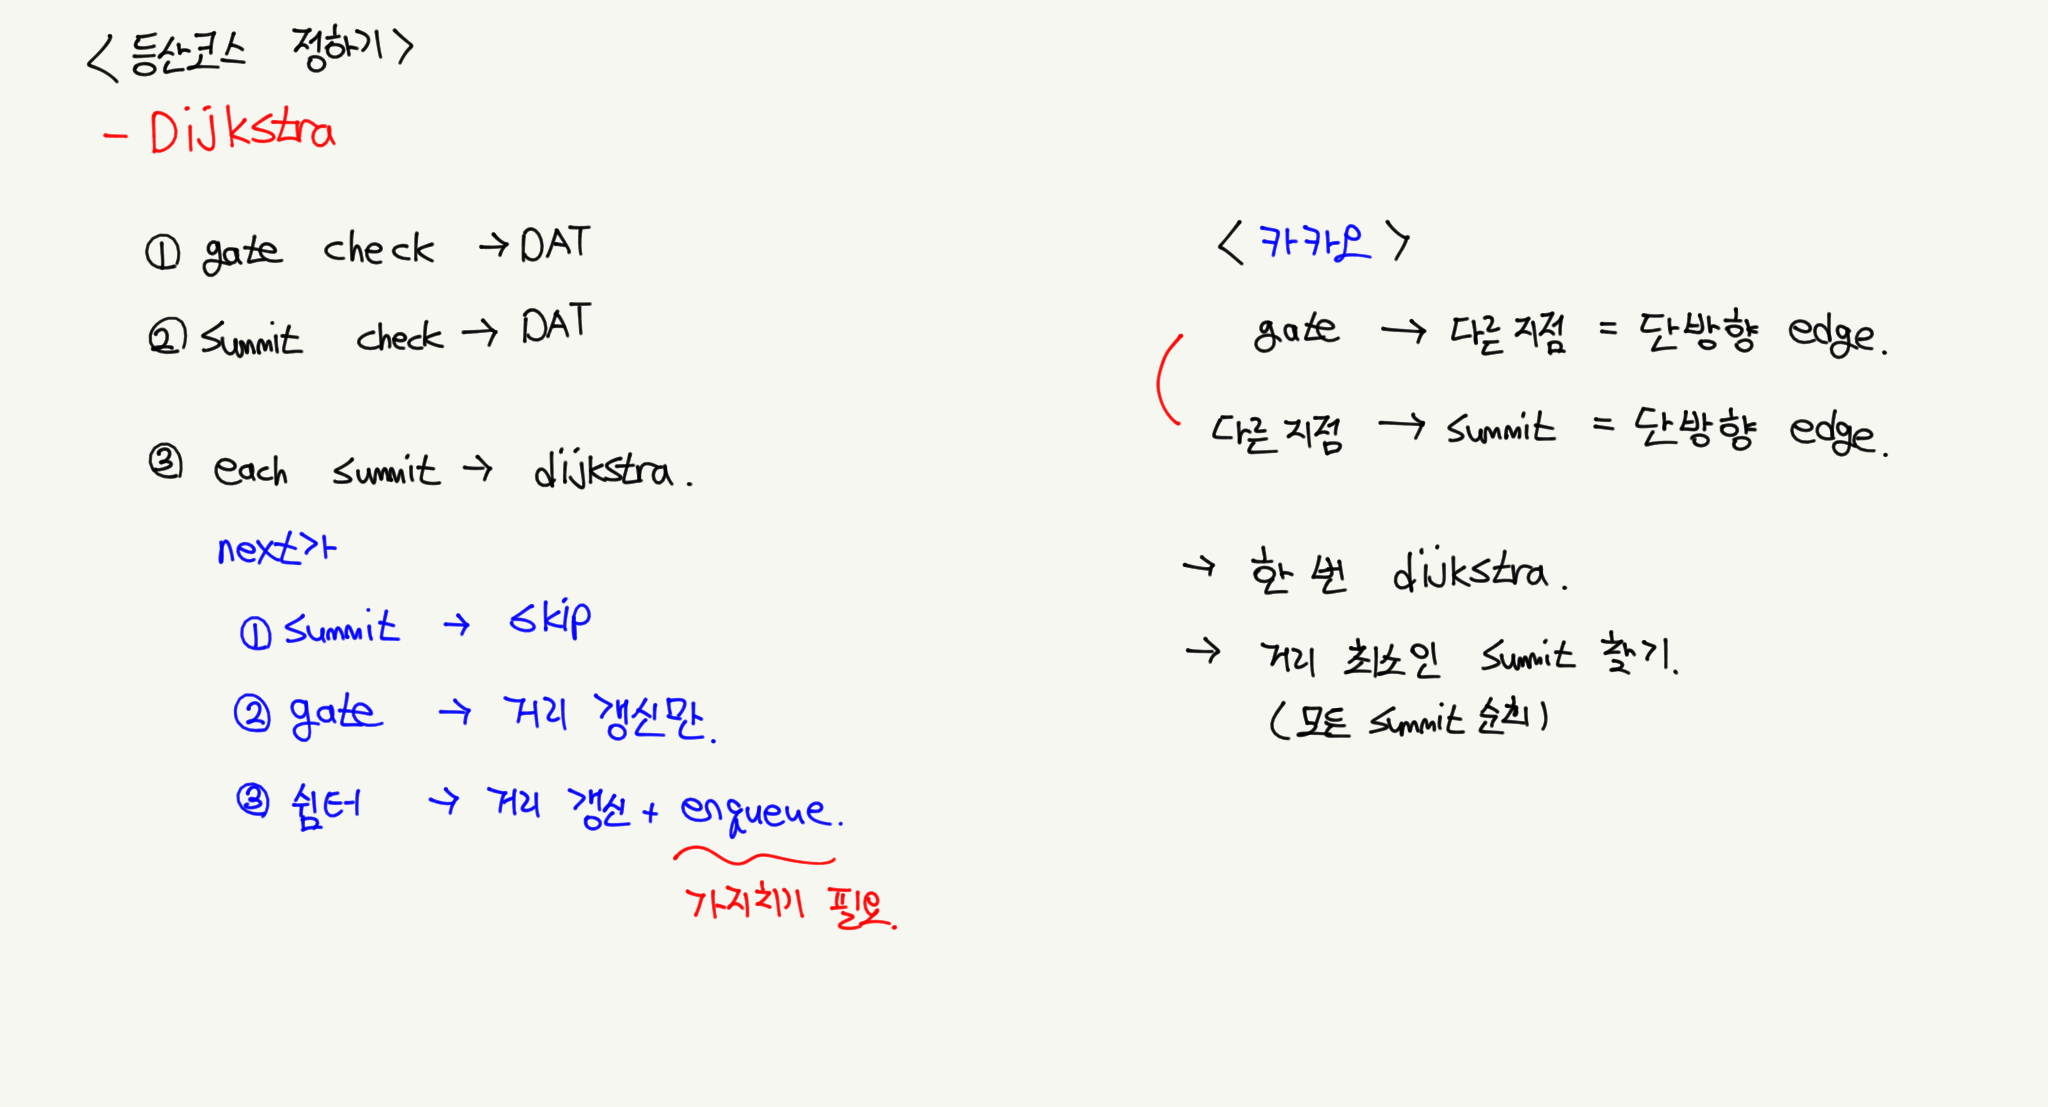 <등산코스 정하기>
- Dijkstra
① gate check → DAT
② summit check → DAT
③ each summit → dijkstra.
next가
① summit → skip
② gate → 거리 갱신만.
③ 쉼터 → 거리 갱신 + enqueue.
가지치기 필요.
<카카오>
gate → 다른 지점 = 단방향 edge.
다른 지점 → summit = 단방향 edge.
→ 한 번 dijkstra.
→ 거리 최소인 summit 찾기.
(모든 summit 순회)